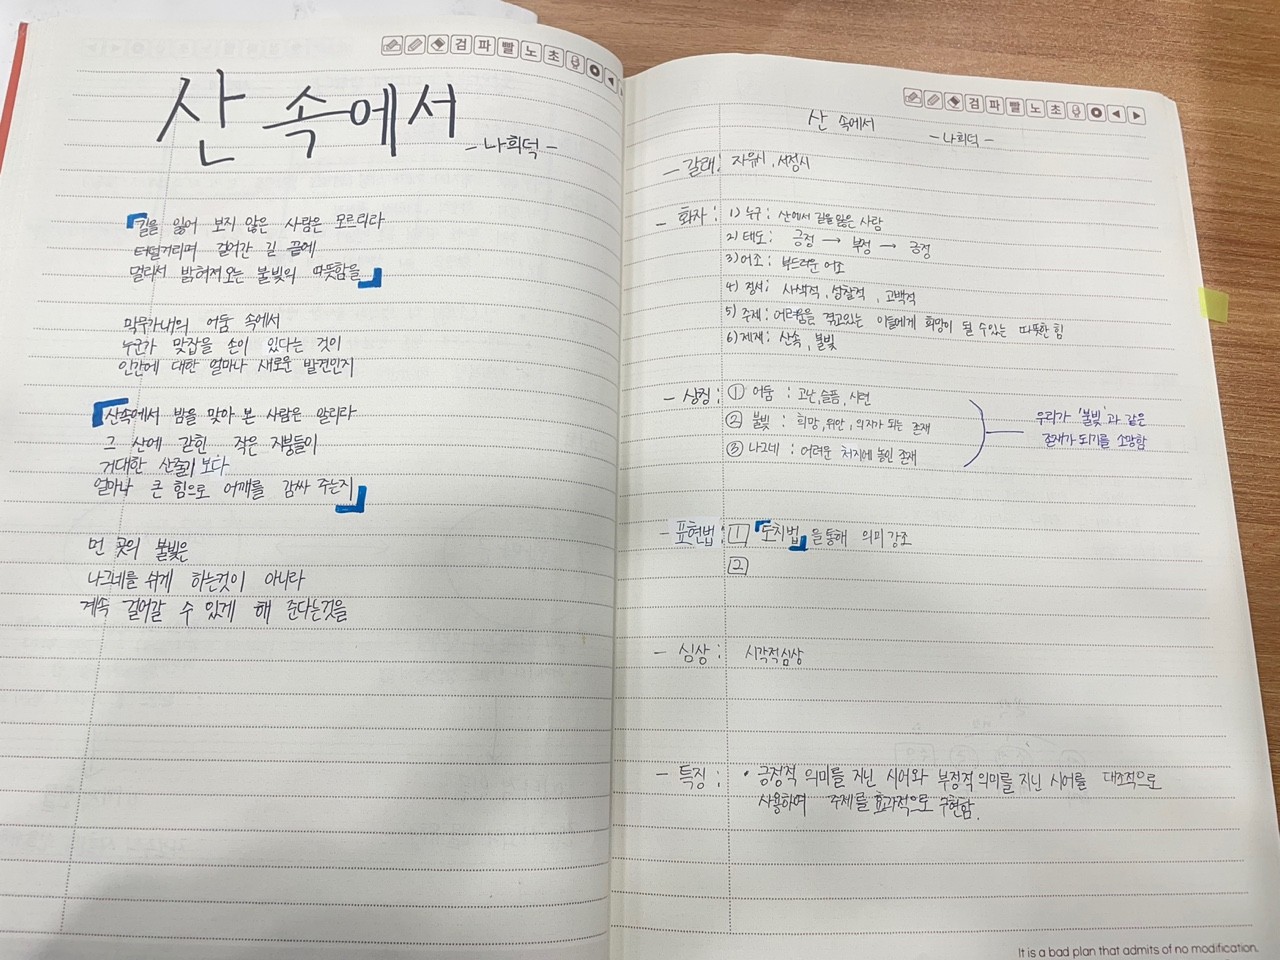 검 파 빨 노 초
산 속에서
- 나희덕 -
길을 잃어 보지 않은 사람은 모르리라
터덜거리며 걸어간 길 끝에
멀리서 밝혀져오는 불빛의 따뜻함을
막무가내의 어둠 속에서
누군가 맞잡을 손이 있다는 것이
인간에 대한 얼마나 새로운 발견인지
산속에서 밤을 맞아 본 사람은 알리라
그 산에 갇힌 작은 지붕들이
거대한 산줄기보다
얼마나 큰 힘으로 어깨를 감싸 주는지
먼 곳의 불빛은
나그네를 쉬게 하는것이 아니라
계속 걸어갈 수 있게 해 준다는것을
검 파 빨 노 초
산 속에서
- 나희덕 -
- 갈래: 자유시, 서정시
- 화자: 1) 누구: 산에서 길을 잃은 사람
2) 태도: 긍정 → 부정 → 긍정
3) 어조: 부드러운 어조
4) 정서: 사색적, 성찰적, 고백적
5) 주제: 어려움을 겪고있는 이들에게 희망이 될 수있는 따뜻한 힘
6) 제재: 산속, 불빛
- 상징: ① 어둠: 고난, 슬픔, 시련
② 불빛: 희망, 위안, 의지가 되는 존재
③ 나그네: 어려운 처지에 놓인 존재
우리가 '불빛'과 같은
존재가 되기를 소망함
- 표현법: 1 「도치법」을 통해 의미 강조
2
- 심상: 시각적심상
- 특징: • 긍정적 의미를 지닌 시어와 부정적 의미를 지닌 시어를 대조적으로
사용하여 주제를 효과적으로 구현함.
It is a bad plan that admits of no modification.